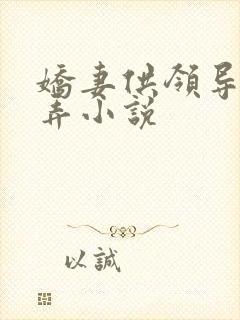 嬌妻供領导
弄小説
以誠